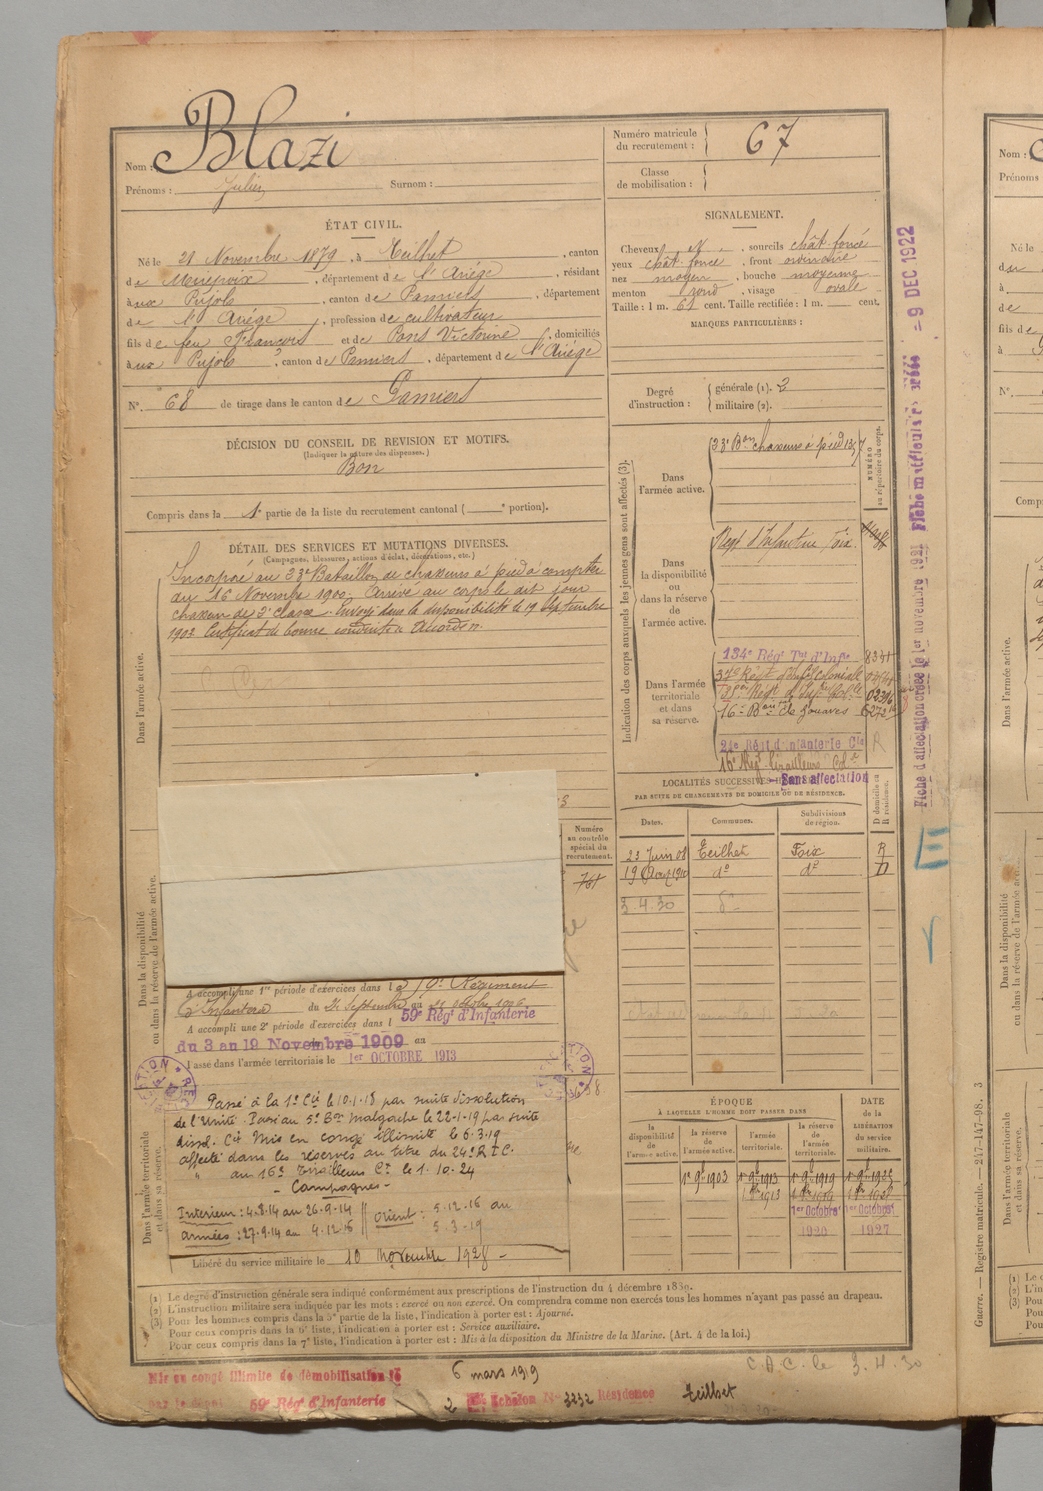 Nom : Blazi
Prénoms : Julien Surnom :
Numéro matricule du recrutement : 67
Classe de mobilisation :
ÉTAT CIVIL.
Né le 21 Novembre 1879, à Teilhet, canton
de Mirepoix, département de l'Ariège, résidant
à aux Pujols, canton de Pamiers, département
de l'Ariège, profession de cultivateur
fils de feu François et de Pons Victorine, domiciliés
à aux Pujols, canton de Pamiers, département de l'Ariège
N° 68 de tirage dans le canton de Pamiers
SIGNALEMENT.
Cheveux, sourcils chât. foncé
yeux chât. foncé, front ordinaire
nez moyen, bouche moyenne
menton rond, visage ovale
Taille : 1 m. 61 cent. Taille rectifiée : 1 m. cent.
MARQUES PARTICULIÈRES :
Degré d'instruction : générale (1). 2
militaire (2).
DÉCISION DU CONSEIL DE REVISION ET MOTIFS.
(Indiquer la nature des dispenses.)
Bon
Compris dans la 1e partie de la liste du recrutement cantonal ( e portion).
DÉTAIL DES SERVICES ET MUTATIONS DIVERSES.
(Campagnes, blessures, actions d'éclat, décorations, etc.)
Dans l'armée active.
Incorporé au 23e Bataillon de chasseurs à pied à compter
du 16 Novembre 1900. Arrivé au corps le dit jour
chasseur de 2e classe. Envoyé dans la disponibilité le 19 Septembre
1903. Certificat de bonne conduite accordé.
Indication des corps auxquels les jeunes gens sont affectés (3).
NUMÉRO au répertoire du corps.
Dans l'armée active.
23e Bon chasseurs à pied
Dans la disponibilité ou dans la réserve de l'armée active.
Régt d'Infanterie Foix
Dans l'armée territoriale et dans sa réserve.
134e Régt Tal d'Infie 8341
16e Bon de Zouaves
24e Régt d'Infanterie Cle R
16e Régt Tirailleurs Col.
Sans affectation
Fiche d'affectation créée le 1er novembre 1921 Fiche matricule - 9 DEC 1922
LOCALITÉS SUCCESSIVES
PAR SUITE DE CHANGEMENTS DE DOMICILE OU DE RÉSIDENCE.
Dates. Communes. Subdivisions de région. D domicile ou R résidence.
23 Juin 08 Teilhet Foix R
do do D
3.4.30 do
Dans la disponibilité ou dans la réserve de l'armée active.
Numéro au contrôle spécial du recrutement.
761
A accompli une 1re période d'exercices dans le Régiment
d'Infanterie du 24 Septembre au 21 octobre 1906
A accompli une 2e période d'exercices dans le 59e Régt d'Infanterie
du 3 au 19 Novembre 1909 au
Passé dans l'armée territoriale le 1er OCTOBRE 1913
Dans l'armée territoriale et dans sa réserve.
Passé à la 1e Cie le 10.1.18 par suite dissolution
de l'Unité. Passé au 5e Bon malgache le 22-1-19 par suite
dissol. Cie Mis en congé illimité le 6.3.19
affecté dans les réserves au titre du 24e R.I.C.
" au 16e Tirailleurs Cx le 1.10.24
- Campagnes -
Intérieur : 4.8.14 au 26.9.14 Orient : 5.12.16 au
armées : 27.9.14 au 4.12.16 5.3.19
Libéré du service militaire le 10 novembre 1928 -
ÉPOQUE
À LAQUELLE L'HOMME DOIT PASSER DANS
DATE de la LIBÉRATION du service militaire.
la disponibilité de l'armée active. la réserve de l'armée active. l'armée territoriale. la réserve de l'armée territoriale.
1er 9bre 1903
1er Octobre 1er Octobre
1920 1927
(1) Le degré d'instruction générale sera indiqué conformément aux prescriptions de l'instruction du 4 décembre 1889.
(2) L'instruction militaire sera indiquée par les mots : exercé ou non exercé. On comprendra comme non exercés tous les hommes n'ayant pas passé au drapeau.
(3) Pour les hommes compris dans la 5e partie de la liste, l'indication à porter est : Ajourné.
Pour ceux compris dans la 6e liste, l'indication à porter est : Service auxiliaire.
Pour ceux compris dans la 7e liste, l'indication à porter est : Mis à la disposition du Ministre de la Marine. (Art. 4 de la loi.)
C.A.C. le 3.4.30
Mis en congé illimité de démobilisation le 6 mars 1919
par le dépôt 59e Régt d'Infanterie 2 Echelon No 3232 Résidence Teilhet
Guerre. — Registre matricule. — 247-147-98. 3